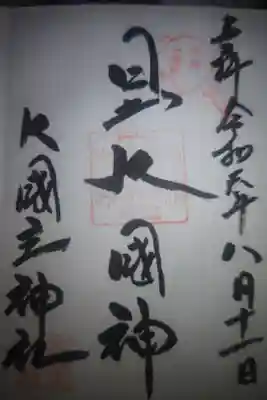 奉拝 令和元年八月十一日
大國神
大國主神社